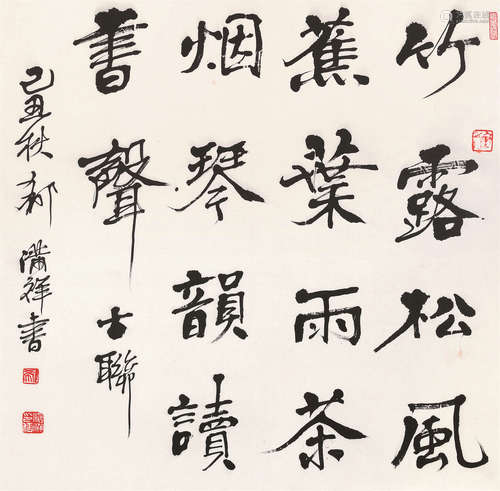 竹露松風
蕉葉雨茶
烟琴韻讀
書聲
古聯
己丑秋郝
满祥書